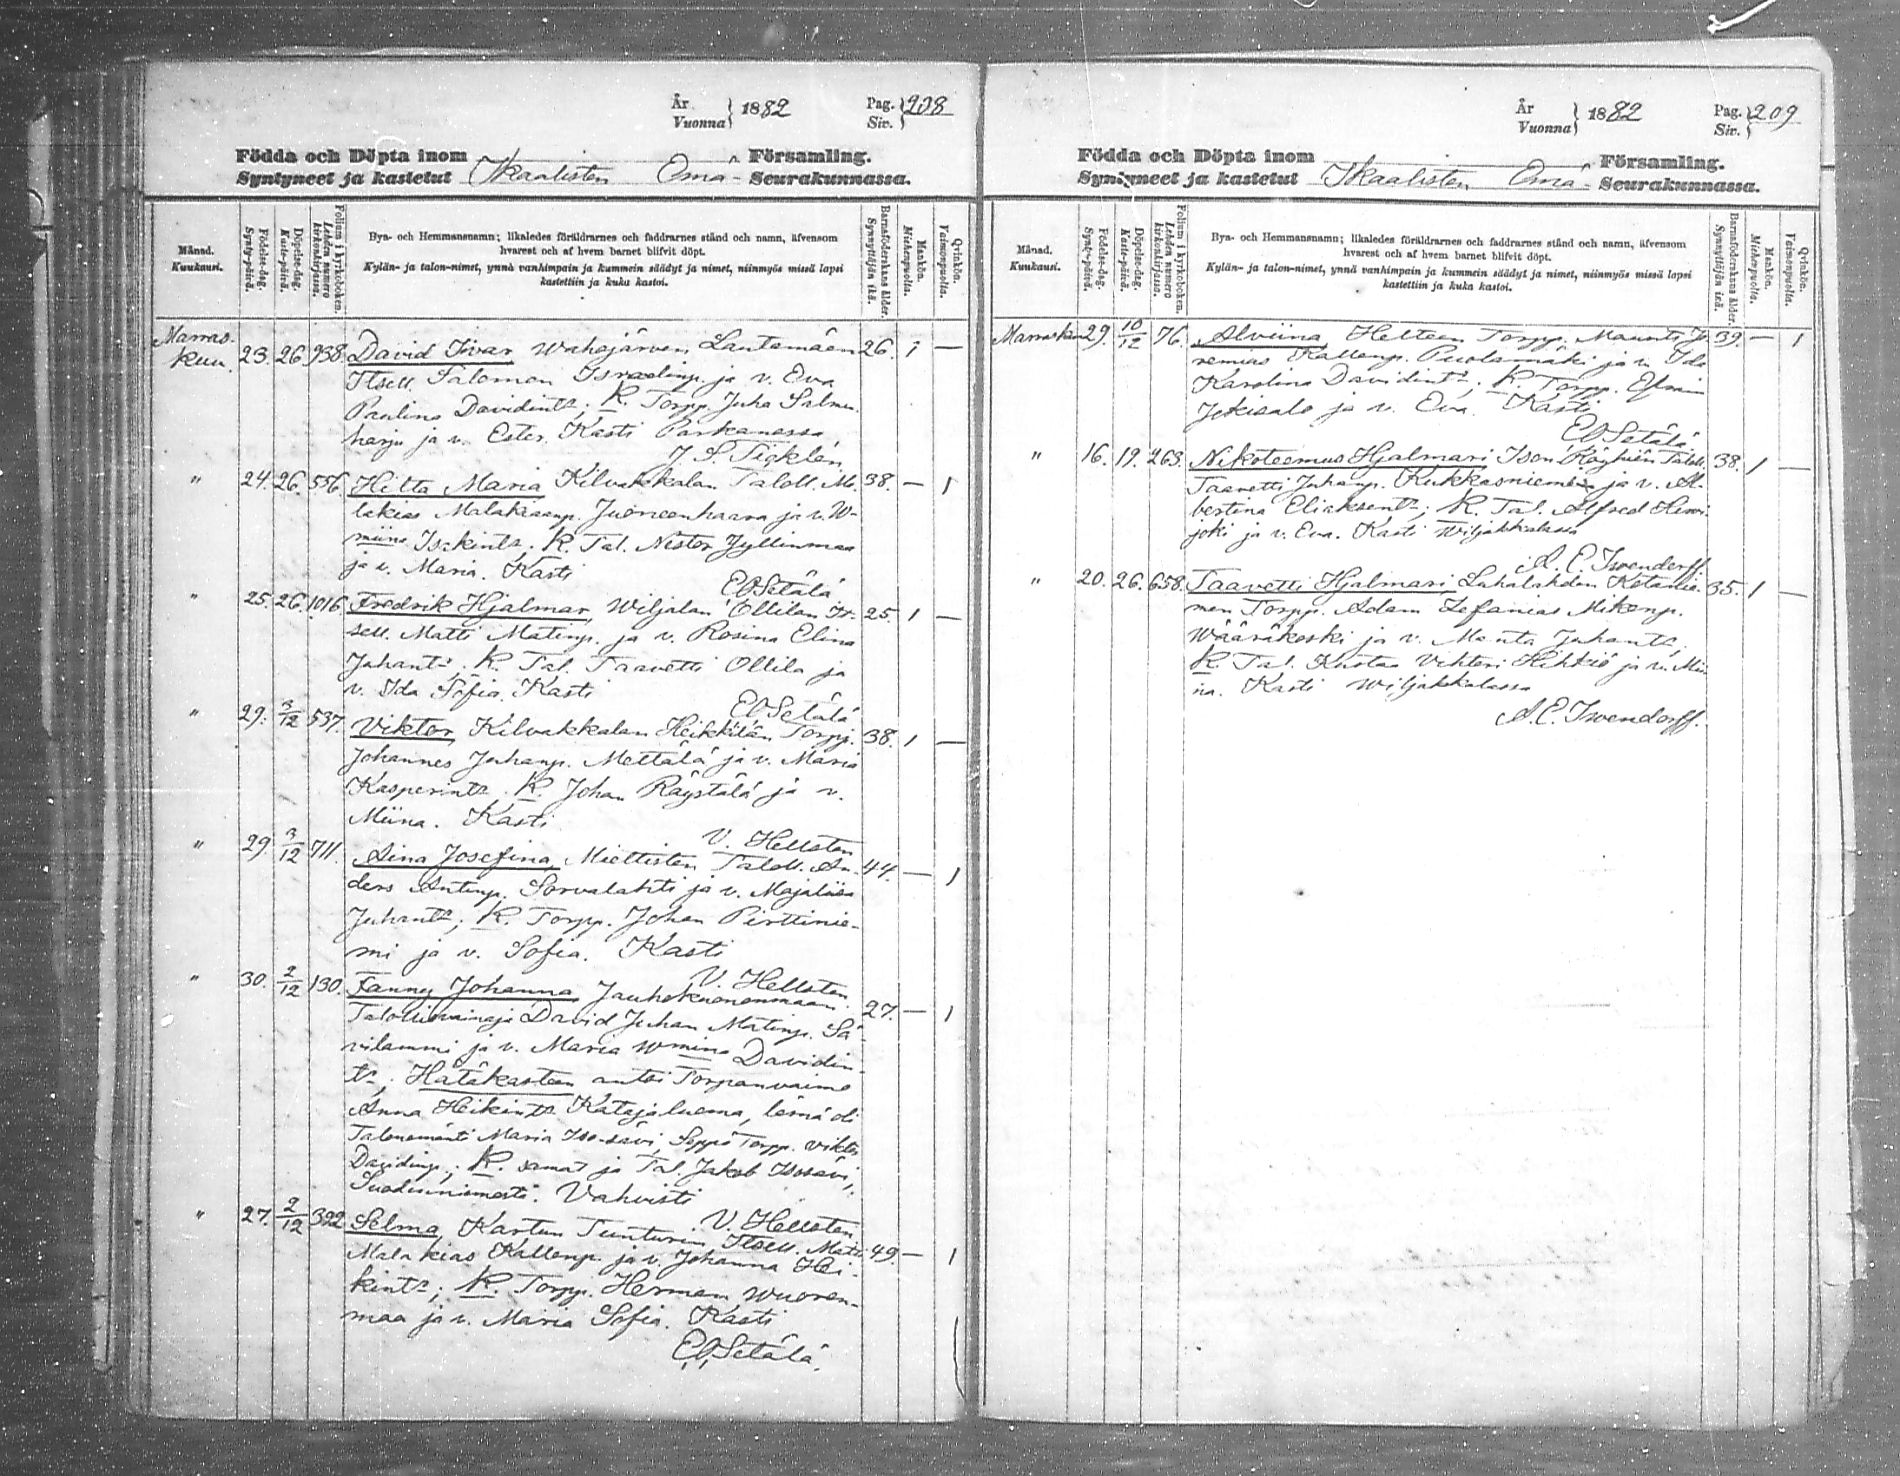 År
Vuonna } 1882
Pag.
Siv. } 208
Födda och Döpta inom
Syntyneet ja kastetut Ikaalisten Emä- Församling.
Seurakunnassa.
Månad.
Kuukausi.
Födelse-dag.
Synty-päivä.
Döpelse-dag.
Kaste-päivä.
Folium i kyrkoboken.
Lehden numero
kirkonkirjassa.
Bya- och Hemmansnamn; likaledes föräldrarnes och faddrarnes stånd och namn, äfvensom
hvarest och af hvem barnet blifvit döpt.
Kylän- ja talon-nimet, ynnä vanhimpain ja kummein säädyt ja nimet, niinmyös missä lapsi
kastettiin ja kuka kastoi.
Barnaföderskans ålder.
Synnyttäjän ikä.
Mankön.
Miehenpuolta.
Qvinkön.
Vaimonpuolta.
Marras-
kuu. 23. 26. 938. David Iivar Wahojärven Lautamäen 26. 1 —
Itsell. Salomon Israelinp. ja v. Eva
Paulina Davidint:; K. Torpp. Juha Salmen-
harju ja v. Ester. Kasti Parkanossa
J. S. Ticklén
" 24. 26. 556. Hilta Maria Kilvakkalan Taloll. Ma- 38. — 1
lakias Malakiaanp. Juoneenhaara ja v. W-
miina Isakint:; K. Tal. Nestor Jyllinmaa
ja v. Maria. Kasti
EOSetälä
" 25. 26. 1016. Fredrik Hjalmar, Wiljalan Ollilan It- 25. 1 —
sell. Matti Matinp. ja v. Rosina Elina
Juhant:; K. Tal. Taavetti Ollila ja
v. Ida Sofia. Kasti
EOSetälä
" 29. 3/12 537. Viktor, Kilvakkalan Heikkilän Torpp. 38. 1 —
Johannes Juhanp. Mettälä ja v. Maria
Kasperint:. K. Johan Räystälä ja v.
Miina. Kasti
V. Hellsten
" 29. 3/12 711. Aina Josefina, Miettisten Taloll. An- 44. — 1
ders Antinp. Sorvalahti ja v. Majaliisa
Juhant:; K. Torpp. Johan Pirttinie-
mi ja v. Sofia. Kasti
V. Hellsten
" 30. 2/12 130. Fanny Johanna, Jauhokuonenmaan 27. — 1
Talollisvainaja David Juhan Matinp. Sa-
vilammi ja v. Maria Wmina Davidin-
t:; Hätäkasteen antoi Torpanvaimo
Anna Heikint: Katajaluoma, läsnä oli
Talonemäntä Maria Iso-sävi, Seppä Torpp. Viktor
Davidinp.; K. samat ja Tal. Jakob Isosävi,
Suodenniemestä. Vahvisti
V. Hellsten
" 27. 2/12 392. Selma, Kartun Tunturin Itsell. Matti 49. — 1
Malakias Kallenp. ja v. Johanna Hei-
kint:; K. Torpp. Herman Wuoren-
maa ja v. Maria Sofia. Kasti
EOSetälä.
År
Vuonna } 1882
Pag.
Siv. } 209
Födda och Döpta inom
Syntyneet ja kastetut Ikaalisten Emä- Församling.
Seurakunnassa.
Månad.
Kuukausi.
Födelse-dag.
Synty-päivä.
Döpelse-dag.
Kaste-päivä.
Folium i kyrkoboken.
Lehden numero
kirkonkirjassa.
Bya- och Hemmansnamn; likaledes föräldrarnes och faddrarnes stånd och namn, äfvensom
hvarest och af hvem barnet blifvit döpt.
Kylän- ja talon-nimet, ynnä vanhimpain ja kummein säädyt ja nimet, niinmyös missä lapsi
kastettiin ja kuka kastoi.
Barnaföderskans ålder.
Synnyttäjän ikä.
Mankön.
Miehenpuolta.
Qvinkön.
Vaimonpuolta.
Marraskuu 29. 10/12 76. Alviina, Heltteen Torpp. Maunts Je- 39. — 1
remias Kallenp. Puolamäki ja v. Ida
Karolina Davidint:; K. Torpp. Efraim
Jokisalo ja v. Eva. Kasti
EOSetälä
" 16. 19. 263. Nikoteemus Hjalmari, Ison Röyhiön Taloll. 38. 1 —
Taavetti Juhanp. Kukkasniemi ja v. Al-
bertina Eliaksent:; K. Tal. Alfred Hirvi-
joki ja v. Eva. Kasti Wiljakkalassa
A. E. Iwendorff.
" 20. 26. 658. Taavetti Hjalmari, Luhalahden Ketunie- 35. 1 —
men Torpp. Adam Zefanias Mikonp.
Wääräkoski ja v. Manta Juhant:.
K. Tal. Kustaa Vihtori Hihkiö ja v. Mii-
na. Kasti Wiljakkalassa
A. E. Iwendorff.